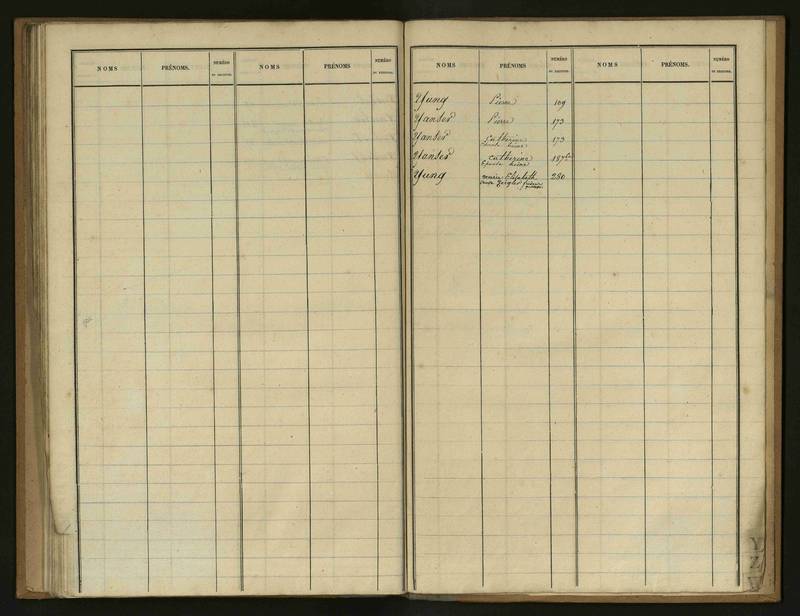 NOMS PRÉNOMS. NUMÉRO DU REGISTRE. NOMS PRÉNOMS NUMÉRO DU REGISTRE.
NOMS PRÉNOMS NUMÉRO DU REGISTRE. NOMS PRÉNOMS. NUMÉRO DU REGISTRE.
Yung Pierre 109
Yanser Pierre 173
Yanser Catherine 173
Yanser Catherine 187
Yung Marie Elisabeth 280
Ziegler
Y
Z